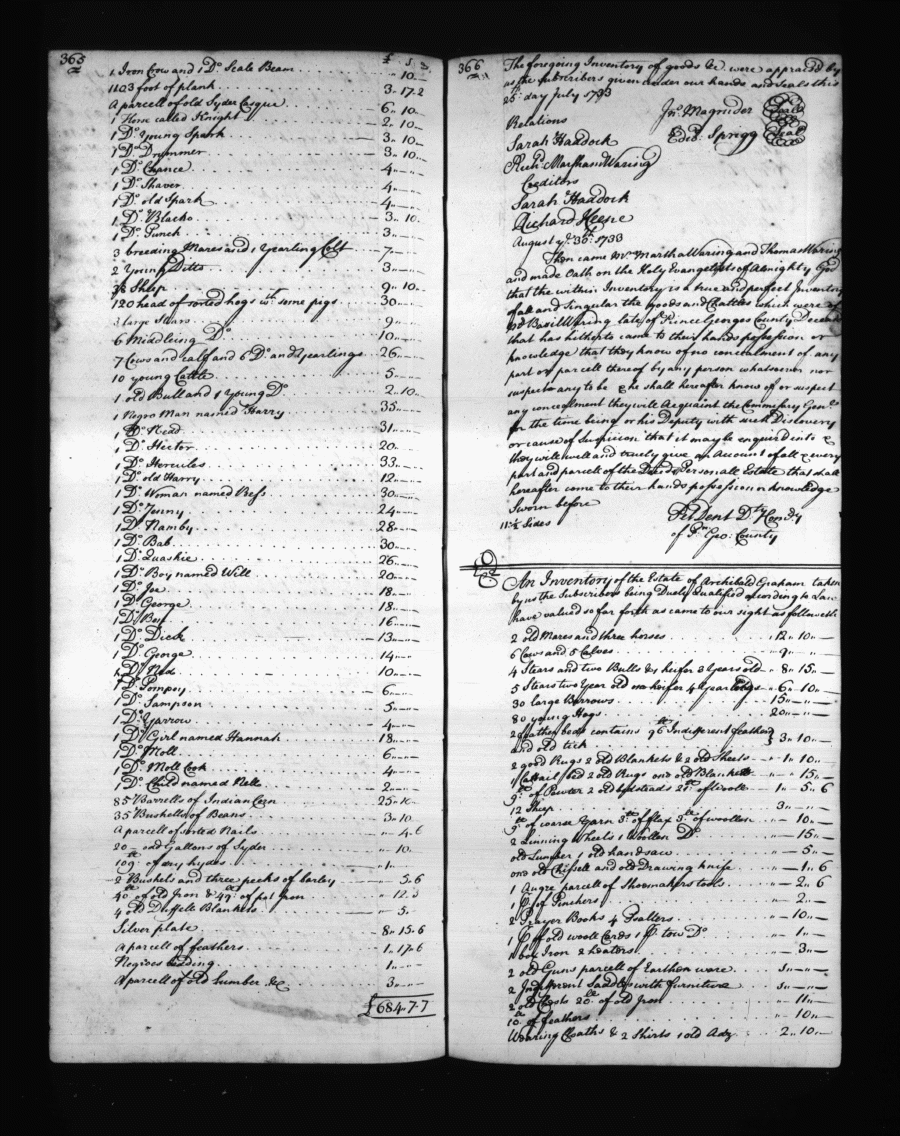 365
£ s d
1 Iron Crow and 1 Do. Scale Beam .. 10 ..
1103 foot of plank 3 .. 17 .. 2
A parcell of old Syder Casque 6 .. 10 ..
1 Horse called Knight 2 .. 10 ..
1 Do. Young Spark 3 .. 10 ..
1 Do. Drummer 3 .. 10 ..
1 Do. Chance 4 ..
1 Do. Shaver 4 ..
1 Do. old Spark 4 ..
1 Do. Blacko 3 .. 10 ..
1 Do. Punch 3 ..
3 breeding Mares and 1 Yearling Colt 7 ..
2 Young Ditto 3 ..
Sheep 9 .. 10 ..
120 head of sorted hogs wth. some pigs 30 ..
large Stears 9 ..
6 Middleing Do. 10 ..
7 Cows and calf and 6 Do. and Yearlings 26 ..
10 young Cattle 5 ..
1 old Bull and 1 Young Do. 2 .. 10 ..
1 Negro Man named Harry 35 ..
1 Do. Nedd 31 ..
1 Do. Hector 20 ..
1 Do. Hercules 33 ..
1 Do. old Harry 12 ..
1 Do. Woman named Bess 30 ..
1 Do. Jenny 24 ..
1 Do. Namby 28 ..
1 Do. Bab 30 ..
1 Do. Quashie 26 ..
1 Do. Boy named Will 20 ..
1 Do. Joe 18 ..
1 Do. George 18 ..
1 Do. Ben 16 ..
1 Do. Dick 13 ..
1 Do. George 14 ..
1 Do. Ned 10 ..
1 Do. Pompey 6 ..
1 Do. Sampson 5 ..
1 Do. Yarrow 4 ..
1 Do. Girl named Hannah 18 ..
1 Do. Moll 6 ..
1 Do. Moll Cook 4 ..
1 Do. Child named Nell 2 ..
85 Barrells of Indian Corn 25 .. 10 ..
35 Bushells of Beans 3 .. 10
A parcell of sorted Nails .. 4 .. 6
20 odd Gallons of Syder .. 10 ..
109 lb. of dry hydes .. 1 ..
2 Bushels and three pecks of barley .. 5 .. 6
40 lb. of old Iron & 49 lb. of pot Iron .. 12 .. 3
4 old Duffell Blankets .. 5 ..
Silver plate 8 .. 15 .. 6
A parcell of feathers 1 .. 17 .. 6
Negroes bedding 1 ..
A parcell of old Lumber &c 3 ..
£684 .. 7 .. 7
366
The foregoing Inventory of goods &c. were appraised by
us the subscribers given under our hands and seals this
25th. day July 1733
Relations Jno. Magruder Seal
Sarah Haddock Edwd. Sprigg Seal
Richd. Marsham Waring
Creditors
Sarah Haddock
Richard Keene
August ye. 30th. 1733
Then came Mrs. Martha Waring and Thomas Waring
and made Oath on the Holy Evangelists of Almighty God
that the within Inventory is a true and perfect Inventory
of all and singular the goods and Chattles which were of
Mr. Basil Waring late of Prince Georges County Deceased
that has hitherto came to their hands possession or
knowledge that they know of no concealment of any
part or parcell thereof by any person whatsoever nor
suspect any to be & he shall hereafter know of or suspect
any concealment they will Acquaint the Commissary Genll.
for the time being or his Deputy with such Discovery
or cause of Suspicion that it may be enquired into &
they will well and truely give an Account of all & every
part and parcell of the Deceds Personall Estate that shall
hereafter come to their hands possession or knowledge
Sworn before
11 1/2 Sides Pet Dent Dty. Comsy.
of Pr. Geo: County
An Inventory of the Estate of Archibald Graham taken
by us the Subscribers being Duely Qualified according to Law
have valued so far forth as came to our sight as followeth
2 old Mares and three horses 12 .. 10 ..
6 Cows and 5 Calves .. 9 ..
4 Stears and two Bulls & 1 heifer 3 Years old 8 .. 15 ..
5 Stears two Year old one heifer 4 Yearlings 6 .. 10 ..
30 large Barrows 15 ..
80 young Hogs 20 ..
2 feather beds contains 96 lb. Indifferent feathers
and old tick } 3 .. 10 ..
2 good Rugs 2 old Blankets & 2 old Sheets 1 .. 10 ..
1 Cattail bed 2 old Rugs one old Blankett .. 15 ..
9 lb. of Pewter 2 old bedsteads 25 lb. of woole 1 .. 5 .. 6
12 Sheep 3 ..
9 lb. of coarse Yarn 3 lb. of flax 3 lb. of woollen .. 10 ..
2 Linning Wheels 1 Woollen Do. .. 15 ..
old Lumber 1 old handsaw .. 5 ..
one old Chissell and old Drawing knife .. 1 .. 6
1 Augre parcell of Shoemakers tools .. 2 .. 6
1 pr. of Pinchers .. 2 ..
2 Prayer Books 4 Psalters .. 10 ..
1 pr. of old wooll Cards 1 pr. tow Do. .. 1 ..
1 box Iron 2 heaters .. 3 ..
2 old Guns parcell of Earthen ware 1 ..
2 Indifferent Saddles with furniture 1 ..
2 old Chests 20 lb. of old Iron .. 11 ..
10 lb. of feathers .. 10 ..
Wearing Cloaths & 2 Shirts 1 old Adz 2 .. 10 ..